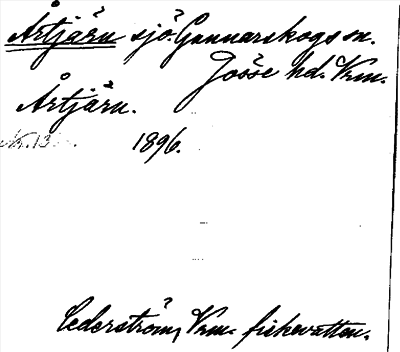 Årtjärn sjö. Gunnarskogs sn.
Jösse hd. Vrm.
Årtjärn.
1896.
Cederström, Vrm. fiskevatten.